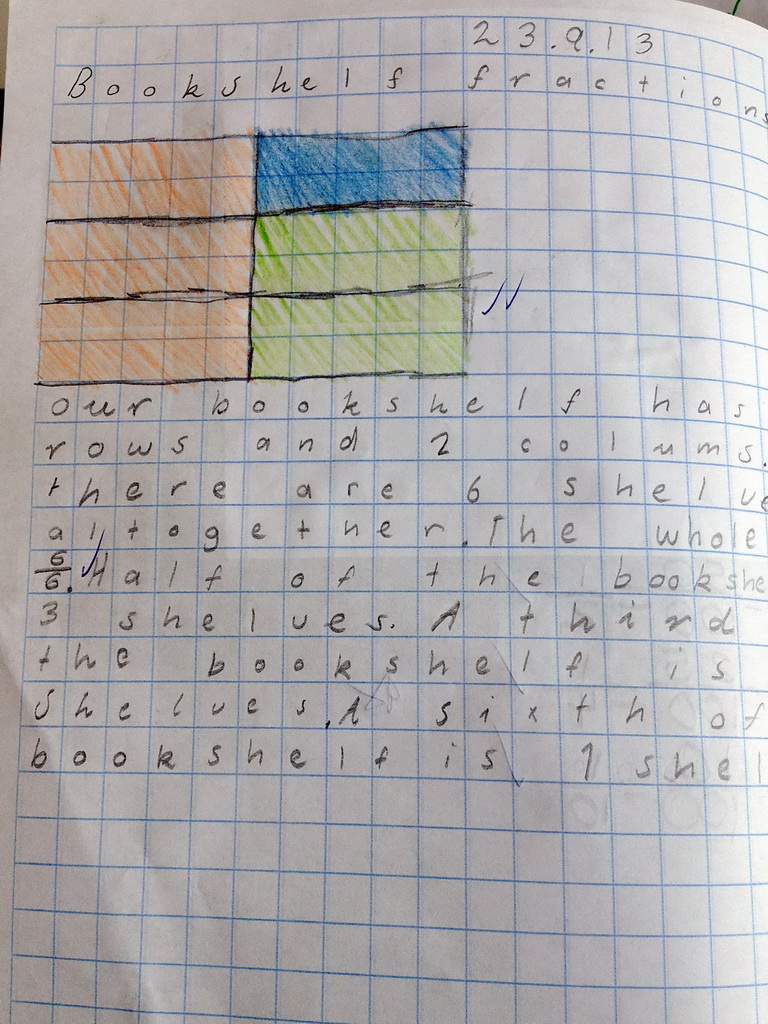 23.9.13
Bookshelf fractions
Our bookshelf has
rows and 2 colums.
there are 6 shelve
altogether. The whole
6/6. Half of the bookshe
3 shelves. A third
the bookshelf is
shelves. A sixth of
bookshelf is 1 shel